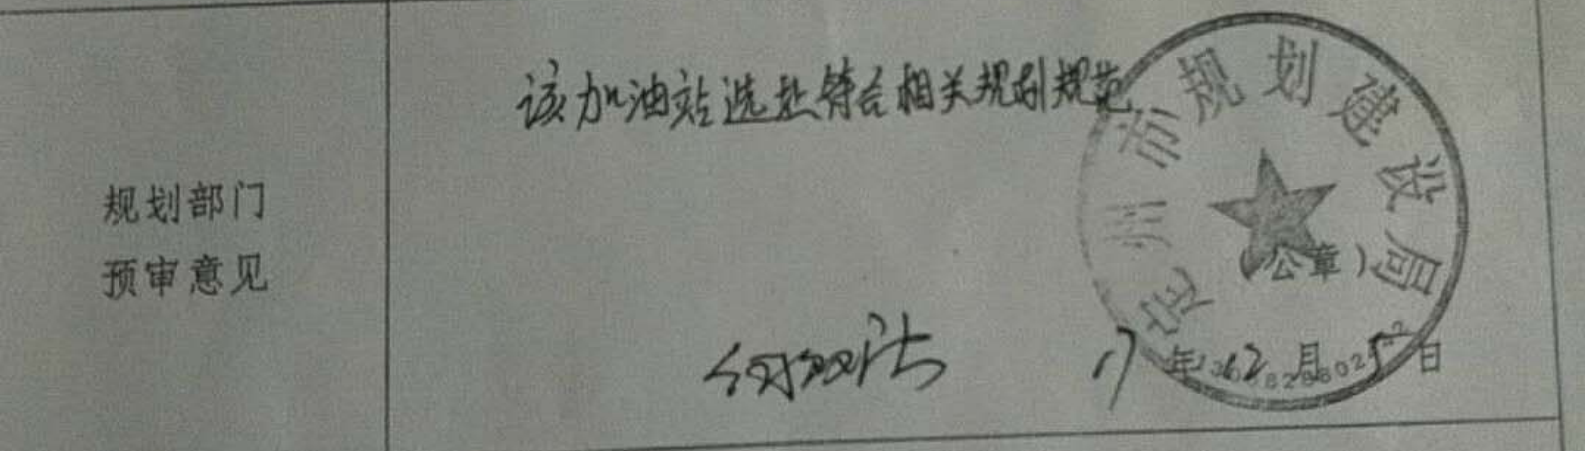 规划部门
预审意见
该加油站选址符合相关规划规范
定州市规划建设局
（公章）
17年 2月5日